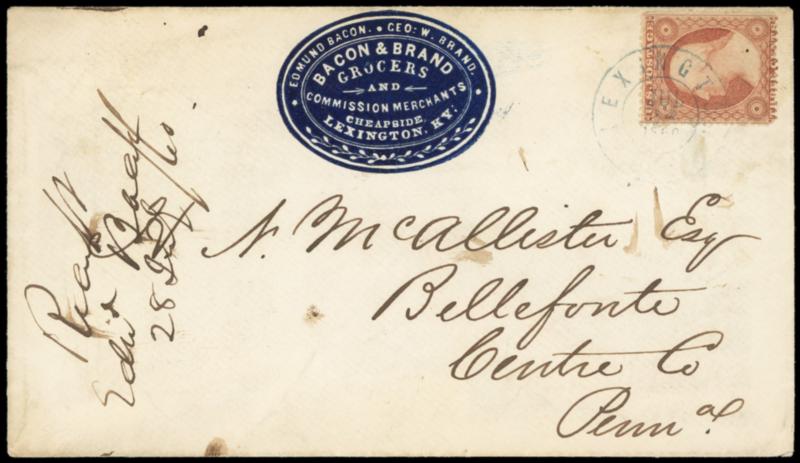 EDMUND BACON. • GEO: W. BRAND.
BACON & BRAND
GROCERS
AND
COMMISSION MERCHANTS
CHEAPSIDE,
LEXINGTON, KY.
U.S. POSTAGE
LEXINGT
N. McAllister Esq
Bellefonte
Centre Co
Penna.
28